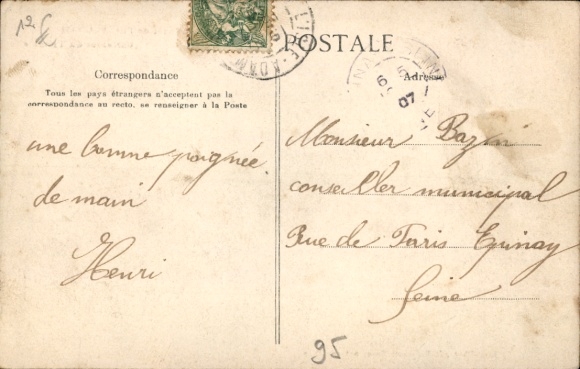 POSTALE
Correspondance
Tous les pays étrangers n'acceptent pas la
correspondance au recto, se renseigner à la Poste
une bonne poignée
de main
Henri
Adresse
Monsieur Bazin
conseiller municipal
Rue de Paris Epinay
Seine
95
07